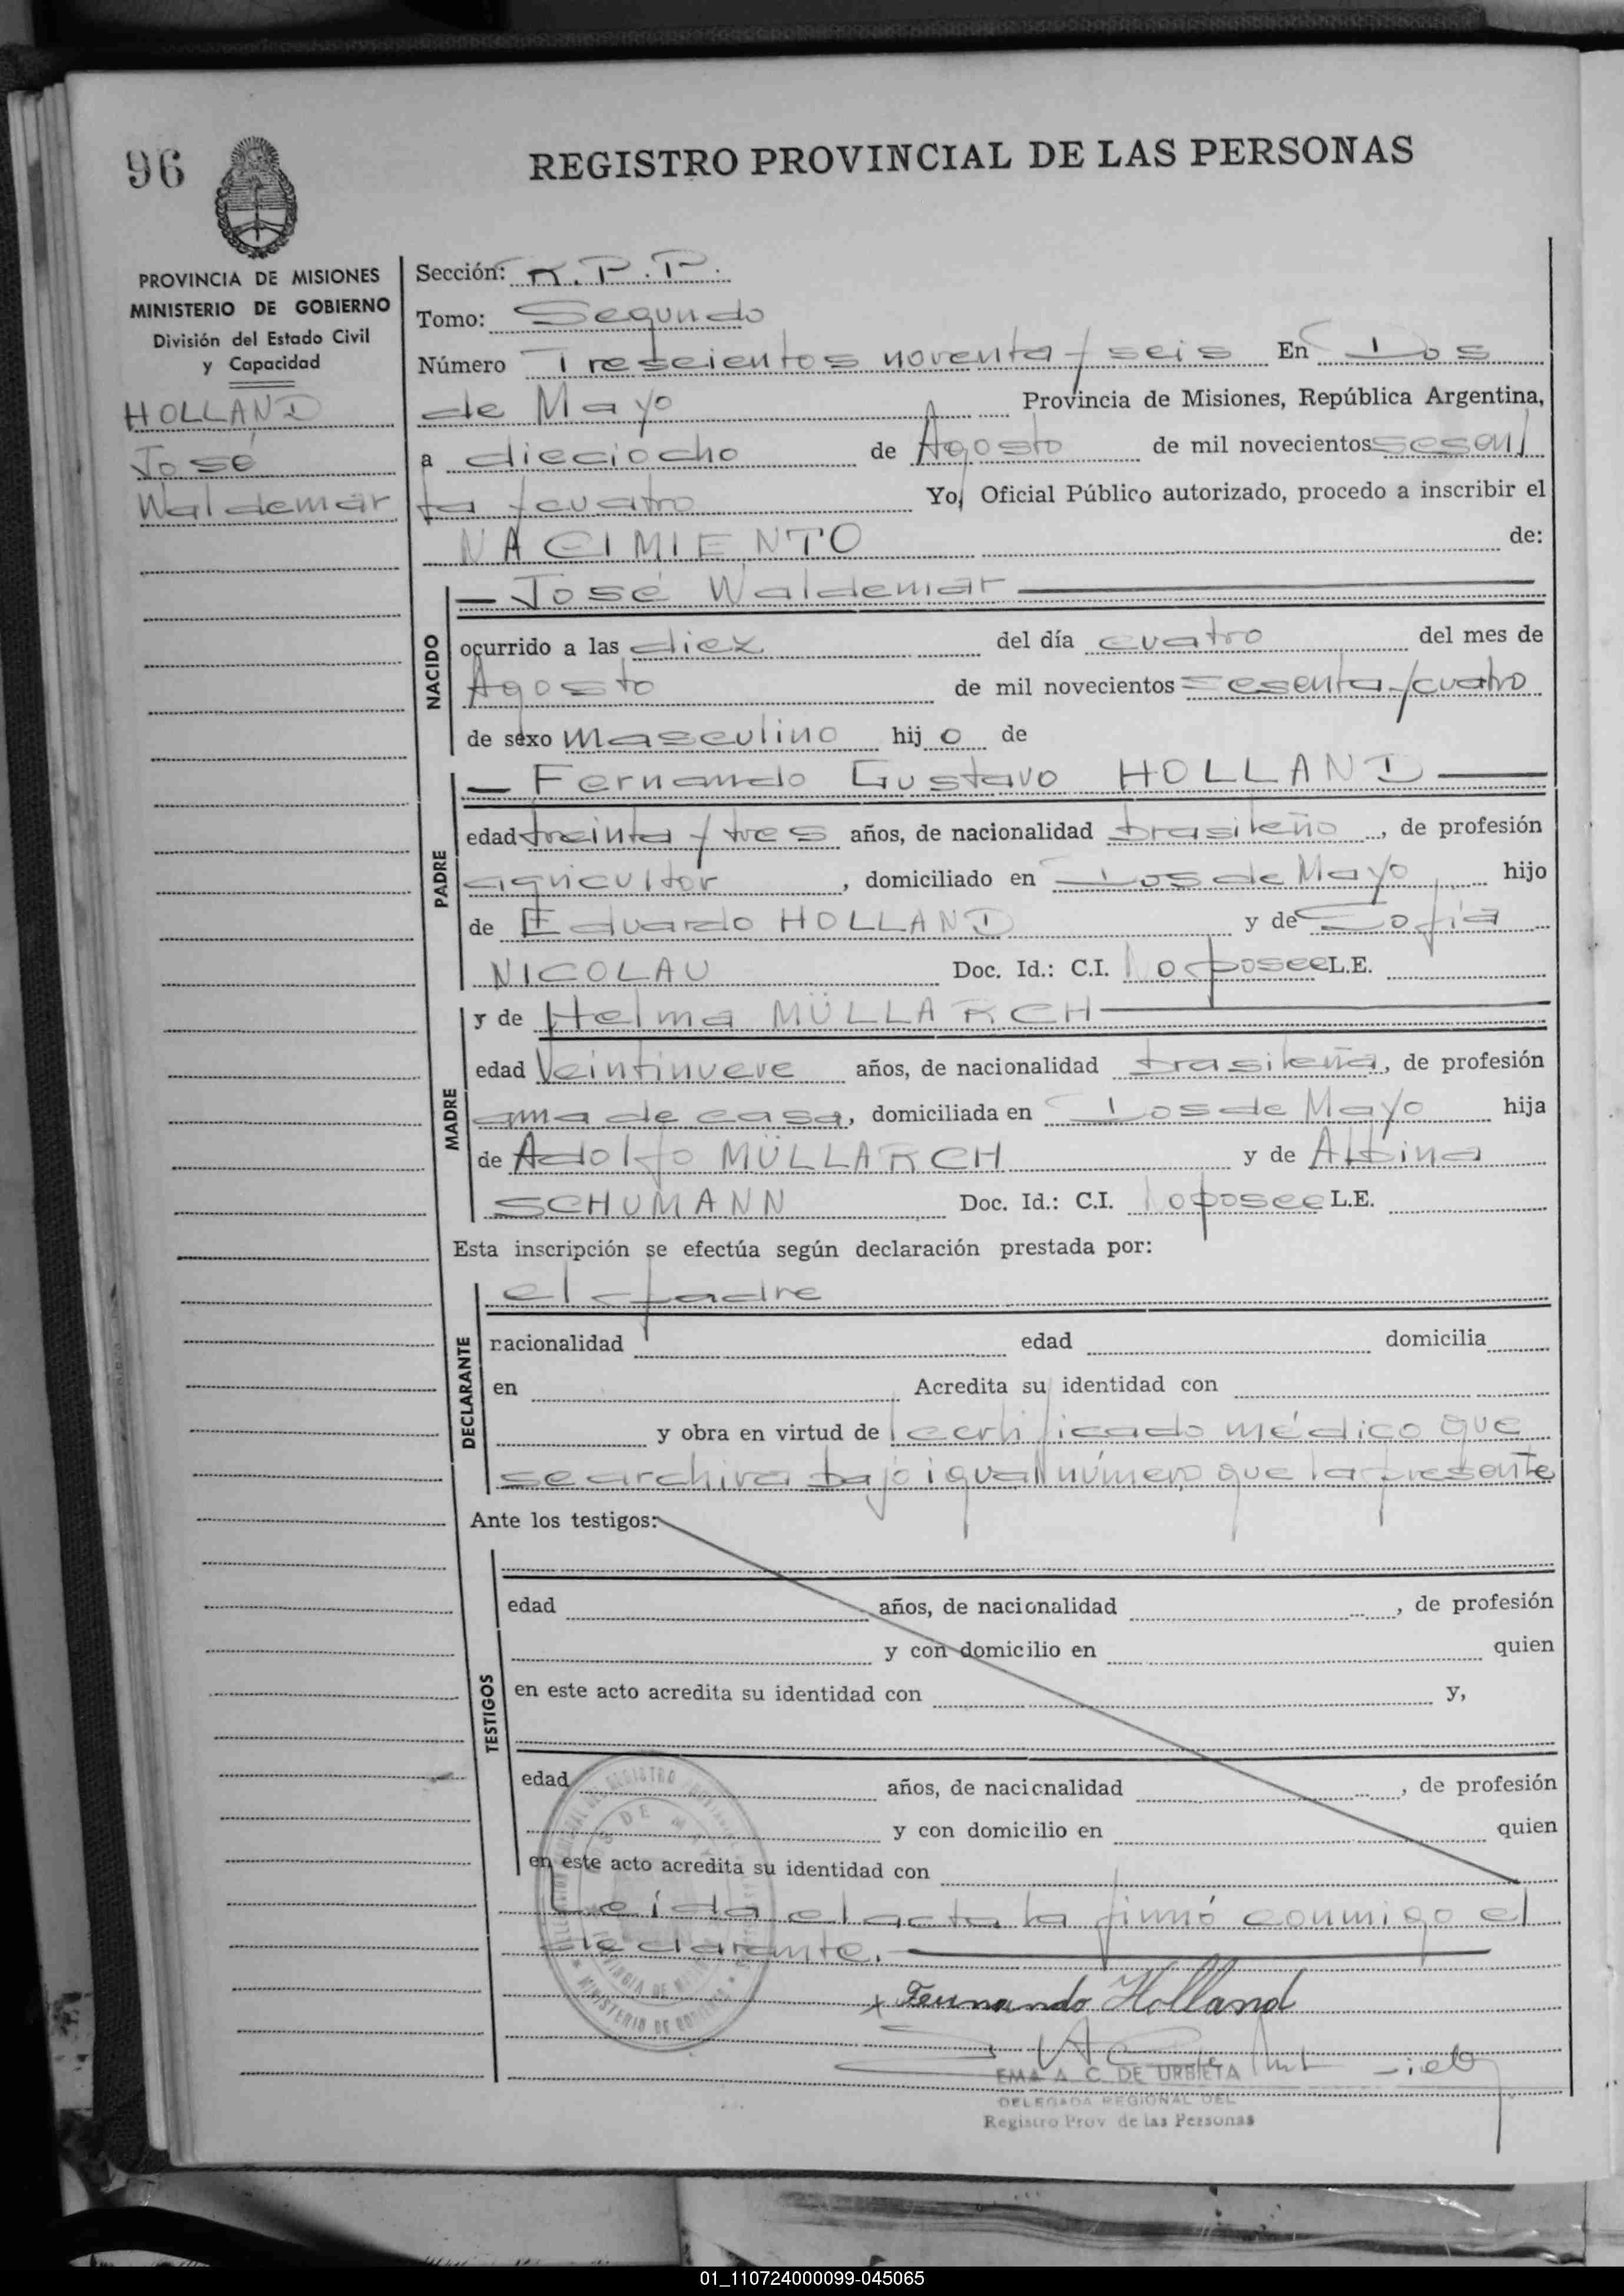 96
REGISTRO PROVINCIAL DE LAS PERSONAS
PROVINCIA DE MISIONES
MINISTERIO DE GOBIERNO
División del Estado Civil
y Capacidad
HOLLAND
José
Waldemar
Sección: R.P.P.
Tomo: Segundo
Número Trescientos noventa y seis En Dos
de Mayo Provincia de Misiones, República Argentina,
a dieciocho de Agosto de mil novecientos sesen/
ta y cuatro Yo, Oficial Público autorizado, procedo a inscribir el
NACIMIENTO de:
NACIDO
— José Waldemar —
ocurrido a las diez del día cuatro del mes de
Agosto de mil novecientos sesenta y cuatro
de sexo masculino hij o de
PADRE
— Fernando Gustavo HOLLAND —
edad treinta y tres años, de nacionalidad brasileño, de profesión
agricultor, domiciliado en Dos de Mayo hijo
de Eduardo HOLLAND y de Sofia
NICOLAU Doc. Id.: C.I. No posee L.E.
MADRE
y de Helma MÜLLARCH —
edad Veintinueve años, de nacionalidad brasileña, de profesión
ama de casa, domiciliada en Dos de Mayo hija
de Adolfo MÜLLARCH y de Albina
SCHUMANN Doc. Id.: C.I. No posee L.E.
Esta inscripción se efectúa según declaración prestada por:
DECLARANTE
el padre
nacionalidad edad domicilia
en Acredita su identidad con
y obra en virtud de certificado médico que
se archiva bajo igual número que la presente
Ante los testigos:
TESTIGOS
edad años, de nacionalidad , de profesión
y con domicilio en quien
en este acto acredita su identidad con y,
edad años, de nacionalidad , de profesión
y con domicilio en quien
en este acto acredita su identidad con
Leída el acta la firmó conmigo el
declarante. —
x Fernando Holland
EMA A. C. DE URBIETA
DELEGADA REGIONAL DEL
Registro Prov de las Personas
01_110724000099-045065